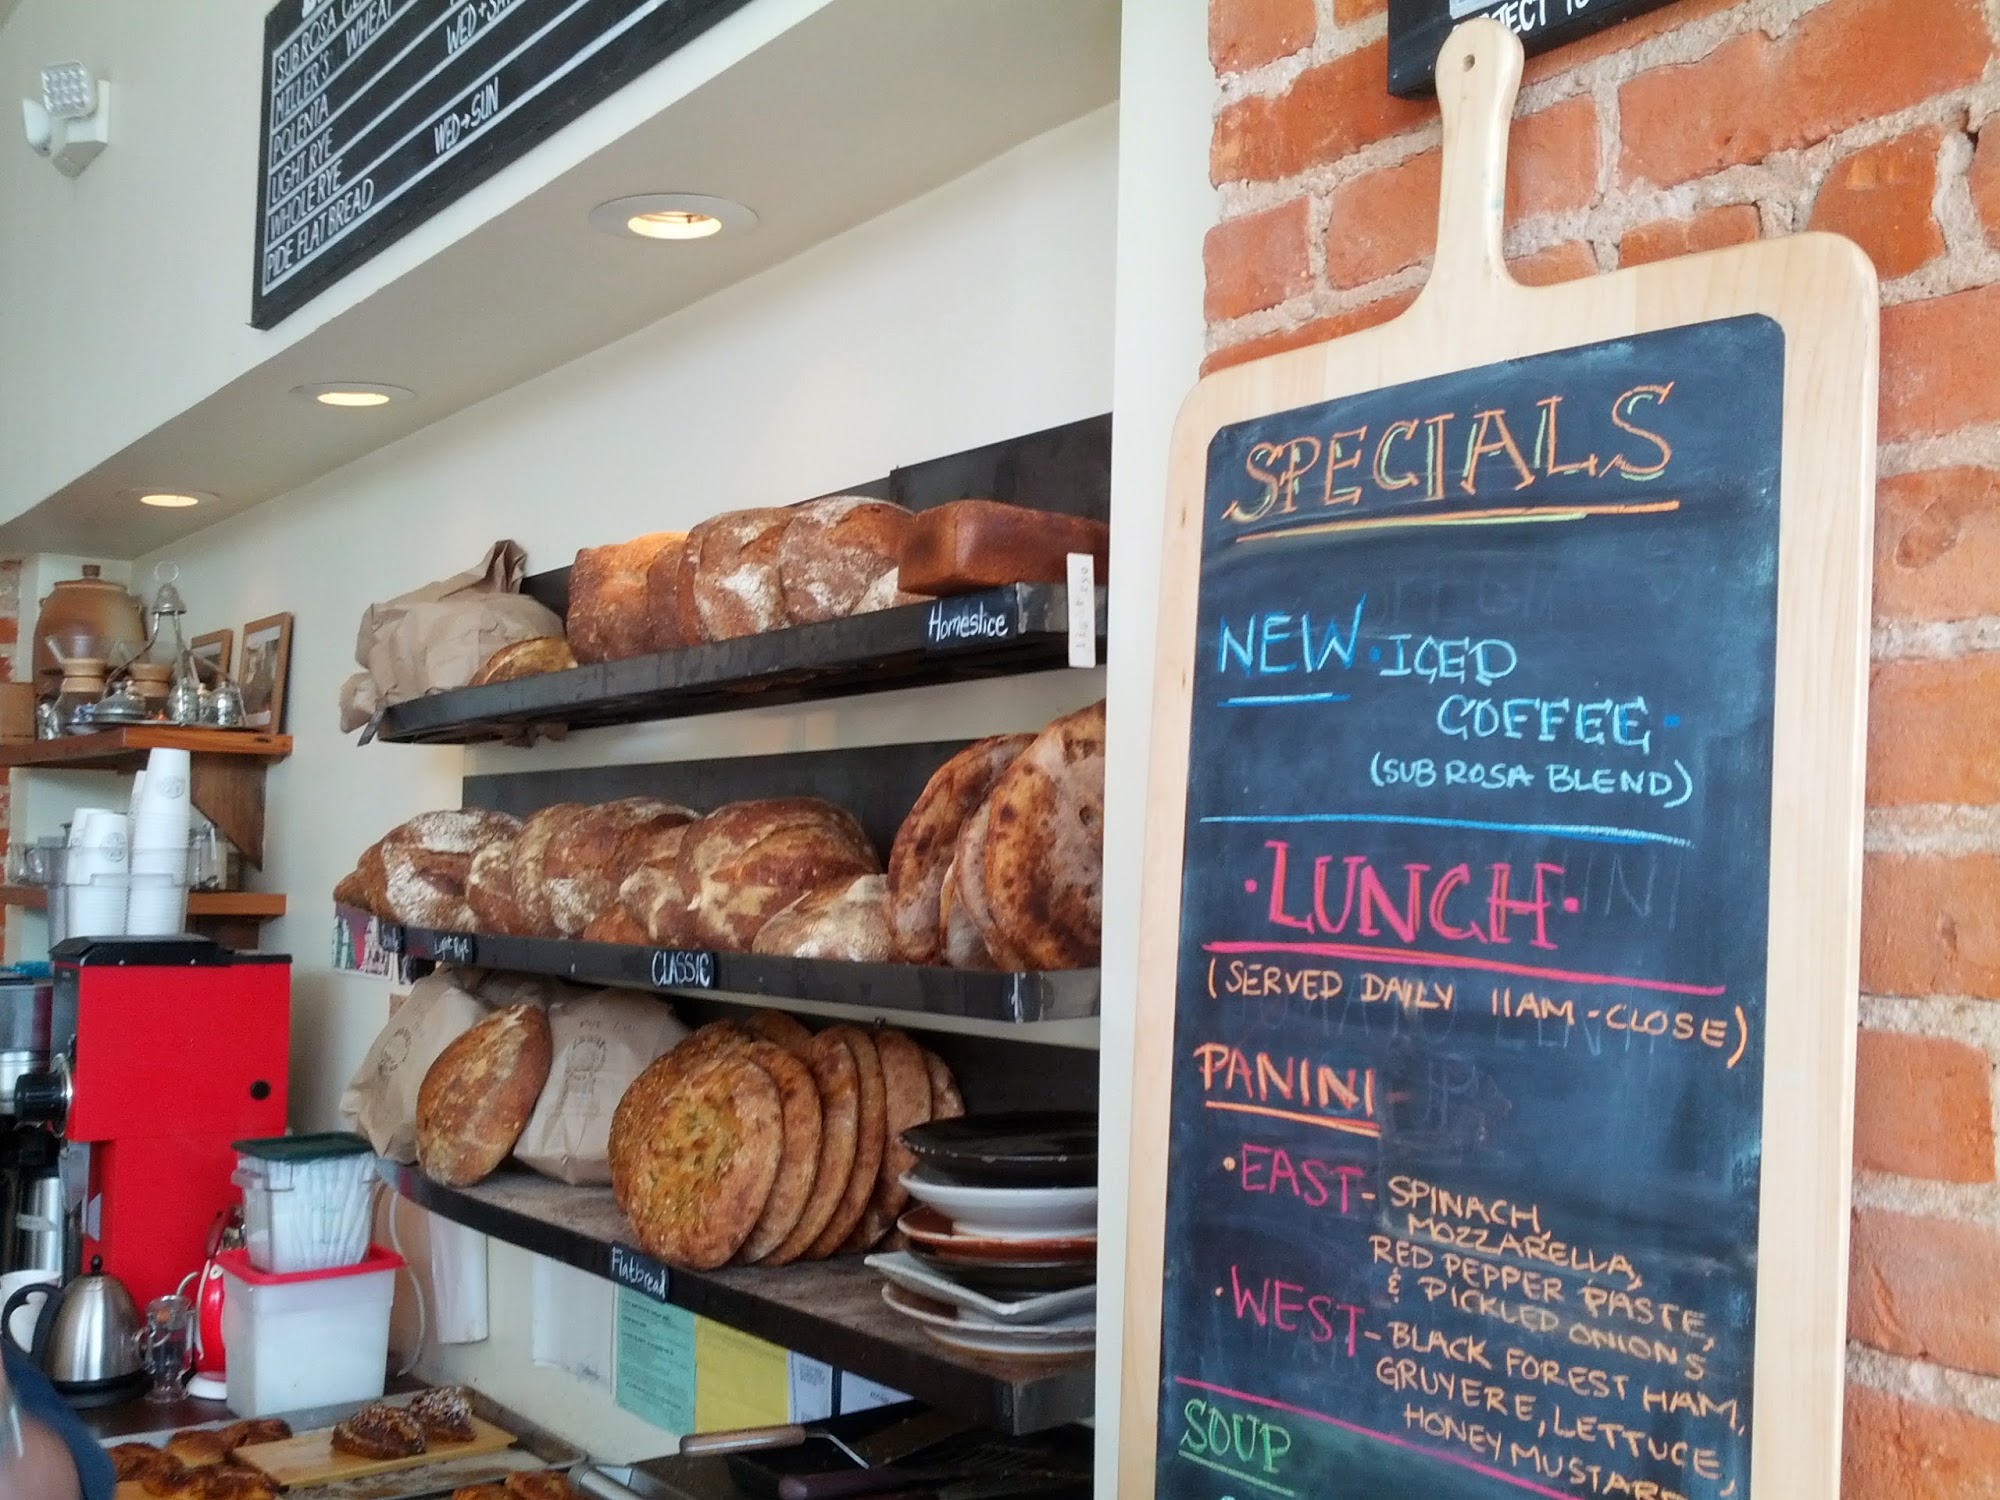 SUB ROSA
MILLER'S WHEAT
WED + SA
POLENTA
LIGHT RYE
WHOLE RYE
WED → SUN
PIDE FLAT BREAD
Homeslice
Light Rye
CLASSIC
Flatbread
SPECIALS
NEW • ICED
COFFEE •
(SUB ROSA BLEND)
• LUNCH •
(SERVED DAILY 11AM - CLOSE)
PANINI
• EAST - SPINACH,
MOZZARELLA,
RED PEPPER PASTE,
& PICKLED ONIONS
• WEST - BLACK FOREST HAM,
GRUYERE, LETTUCE,
HONEY MUSTAR
SOUP